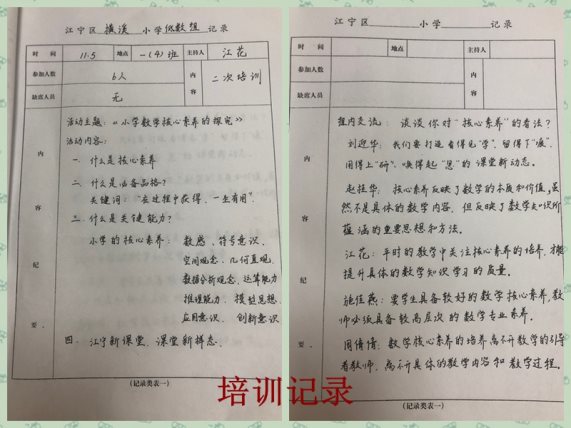 江宁区 横溪 小学 低数组 记录
时 间 11.5 地点 一(4)班 主持人 江花
参加人数 6人 内容 二次培训
缺席人员 无
内容纪要
活动主题:《小学数学核心素养的探究》
活动内容:
一. 什么是核心素养
二. 什么是必备品格?
关键词:"在过程中获得,一生有用".
三. 什么是关键能力?
小学的核心素养: 数感、符号意识、
空间观念、几何直观、
数据分析观念、运算能力
推理能力、模型思想、
应用意识、创新意识
四. 江宁新课堂、课堂新样态.
(记录类表一)
江宁区 小学 记录
时 间 地点 主持人
参加人数 内容
缺席人员
内容纪要
组内交流: 谈谈你对"核心素养"的看法?
刘迎华: 我们要打造看得见"学"、留得下"痕"、
用得上"研"、唤得起"思"的课堂新动态.
赵桂华: 核心素养反映了数学的本质和价值,虽
然不是具体的数学内容,但反映了数学知识所
蕴涵的重要思想和方法.
江花: 平时的教学中关注核心素养的培养,才能
提升具体的数学知识学习的质量.
施佳燕: 要学生具备较好的数学核心素养,教
师必须具备较高层次的数学专业素养.
周倩倩: 数学核心素养的培养离不开数学的引导
者教师,离不开具体的数学内容和教学过程.
(记录类表一)
培训记录